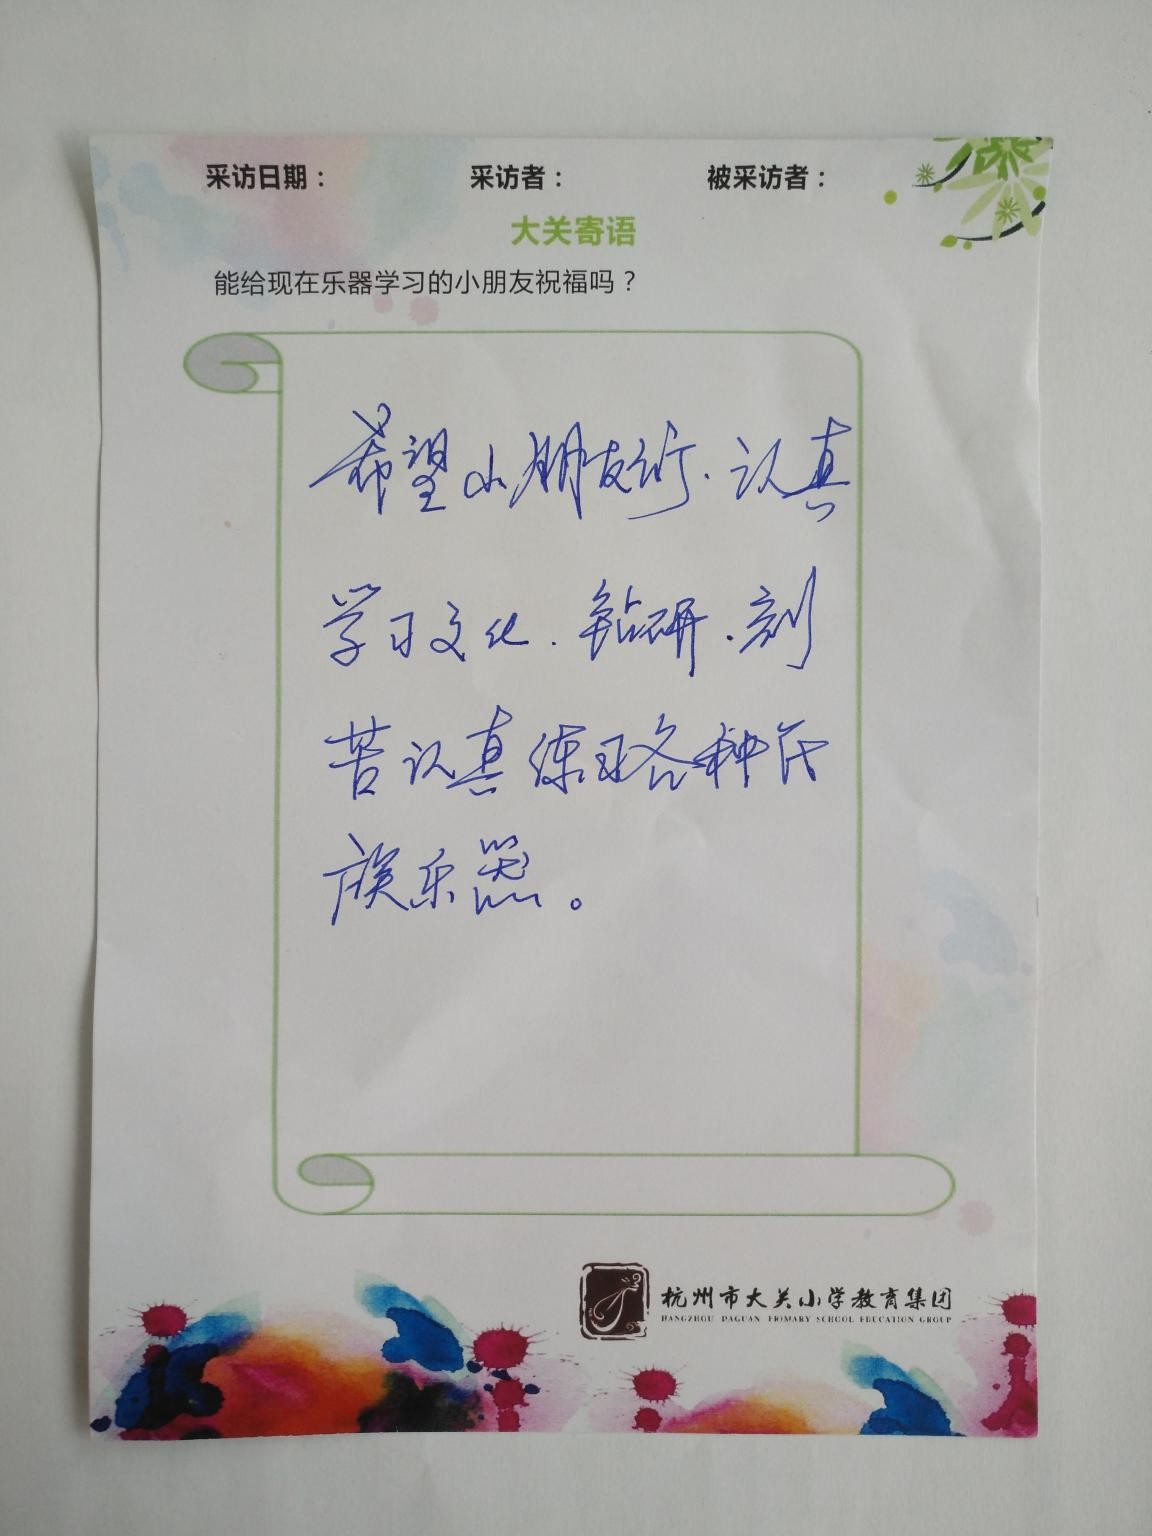 采访日期： 采访者： 被采访者：
大关寄语
能给现在乐器学习的小朋友祝福吗？
希望小朋友们、认真
学习文化、钻研、刻
苦认真练习各种民
族乐器。
杭州市大关小学教育集团
HANGZHOU DAGUAN PRIMARY SCHOOL EDUCATION GROUP